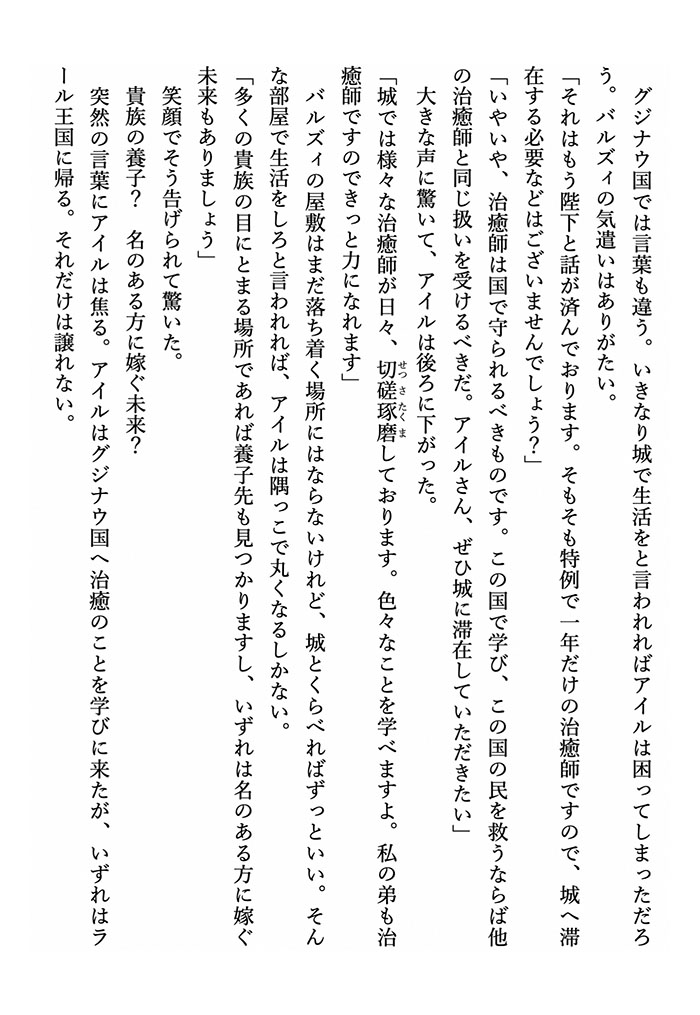 グジナウ国では言葉も違う。いきなり城で生活をと言われればアイルは困ってしまっただろ
う。バルズィの気遣いはありがたい。
「それはもう陛下と話が済んでおります。そもそも特例で一年だけの治癒師ですので、城へ滞
在する必要などはございませんでしょう？」
「いやいや、治癒師は国で守られるべきものです。この国で学び、この国の民を救うならば他
の治癒師と同じ扱いを受けるべきだ。アイルさん、ぜひ城に滞在していただきたい」
　大きな声に驚いて、アイルは後ろに下がった。
「城では様々な治癒師が日々、切磋琢磨しております。色々なことを学べますよ。私の弟も治
癒師ですのできっと力になれます」
　バルズィの屋敷はまだ落ち着く場所にはならないけれど、城とくらべればずっといい。そん
な部屋で生活をしろと言われれば、アイルは隅っこで丸くなるしかない。
「多くの貴族の目にとまる場所であれば養子先も見つかりますし、いずれは名のある方に嫁ぐ
未来もありましょう」
　笑顔でそう告げられて驚いた。
　貴族の養子？　名のある方に嫁ぐ未来？
　突然の言葉にアイルは焦る。アイルはグジナウ国へ治癒のことを学びに来たが、いずれはラ
ール王国に帰る。それだけは譲れない。